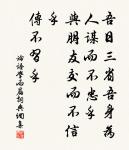 吾日三省吾身為
人謀而不忠乎
與朋友交而不信
乎
傳不習乎
論語學而篇